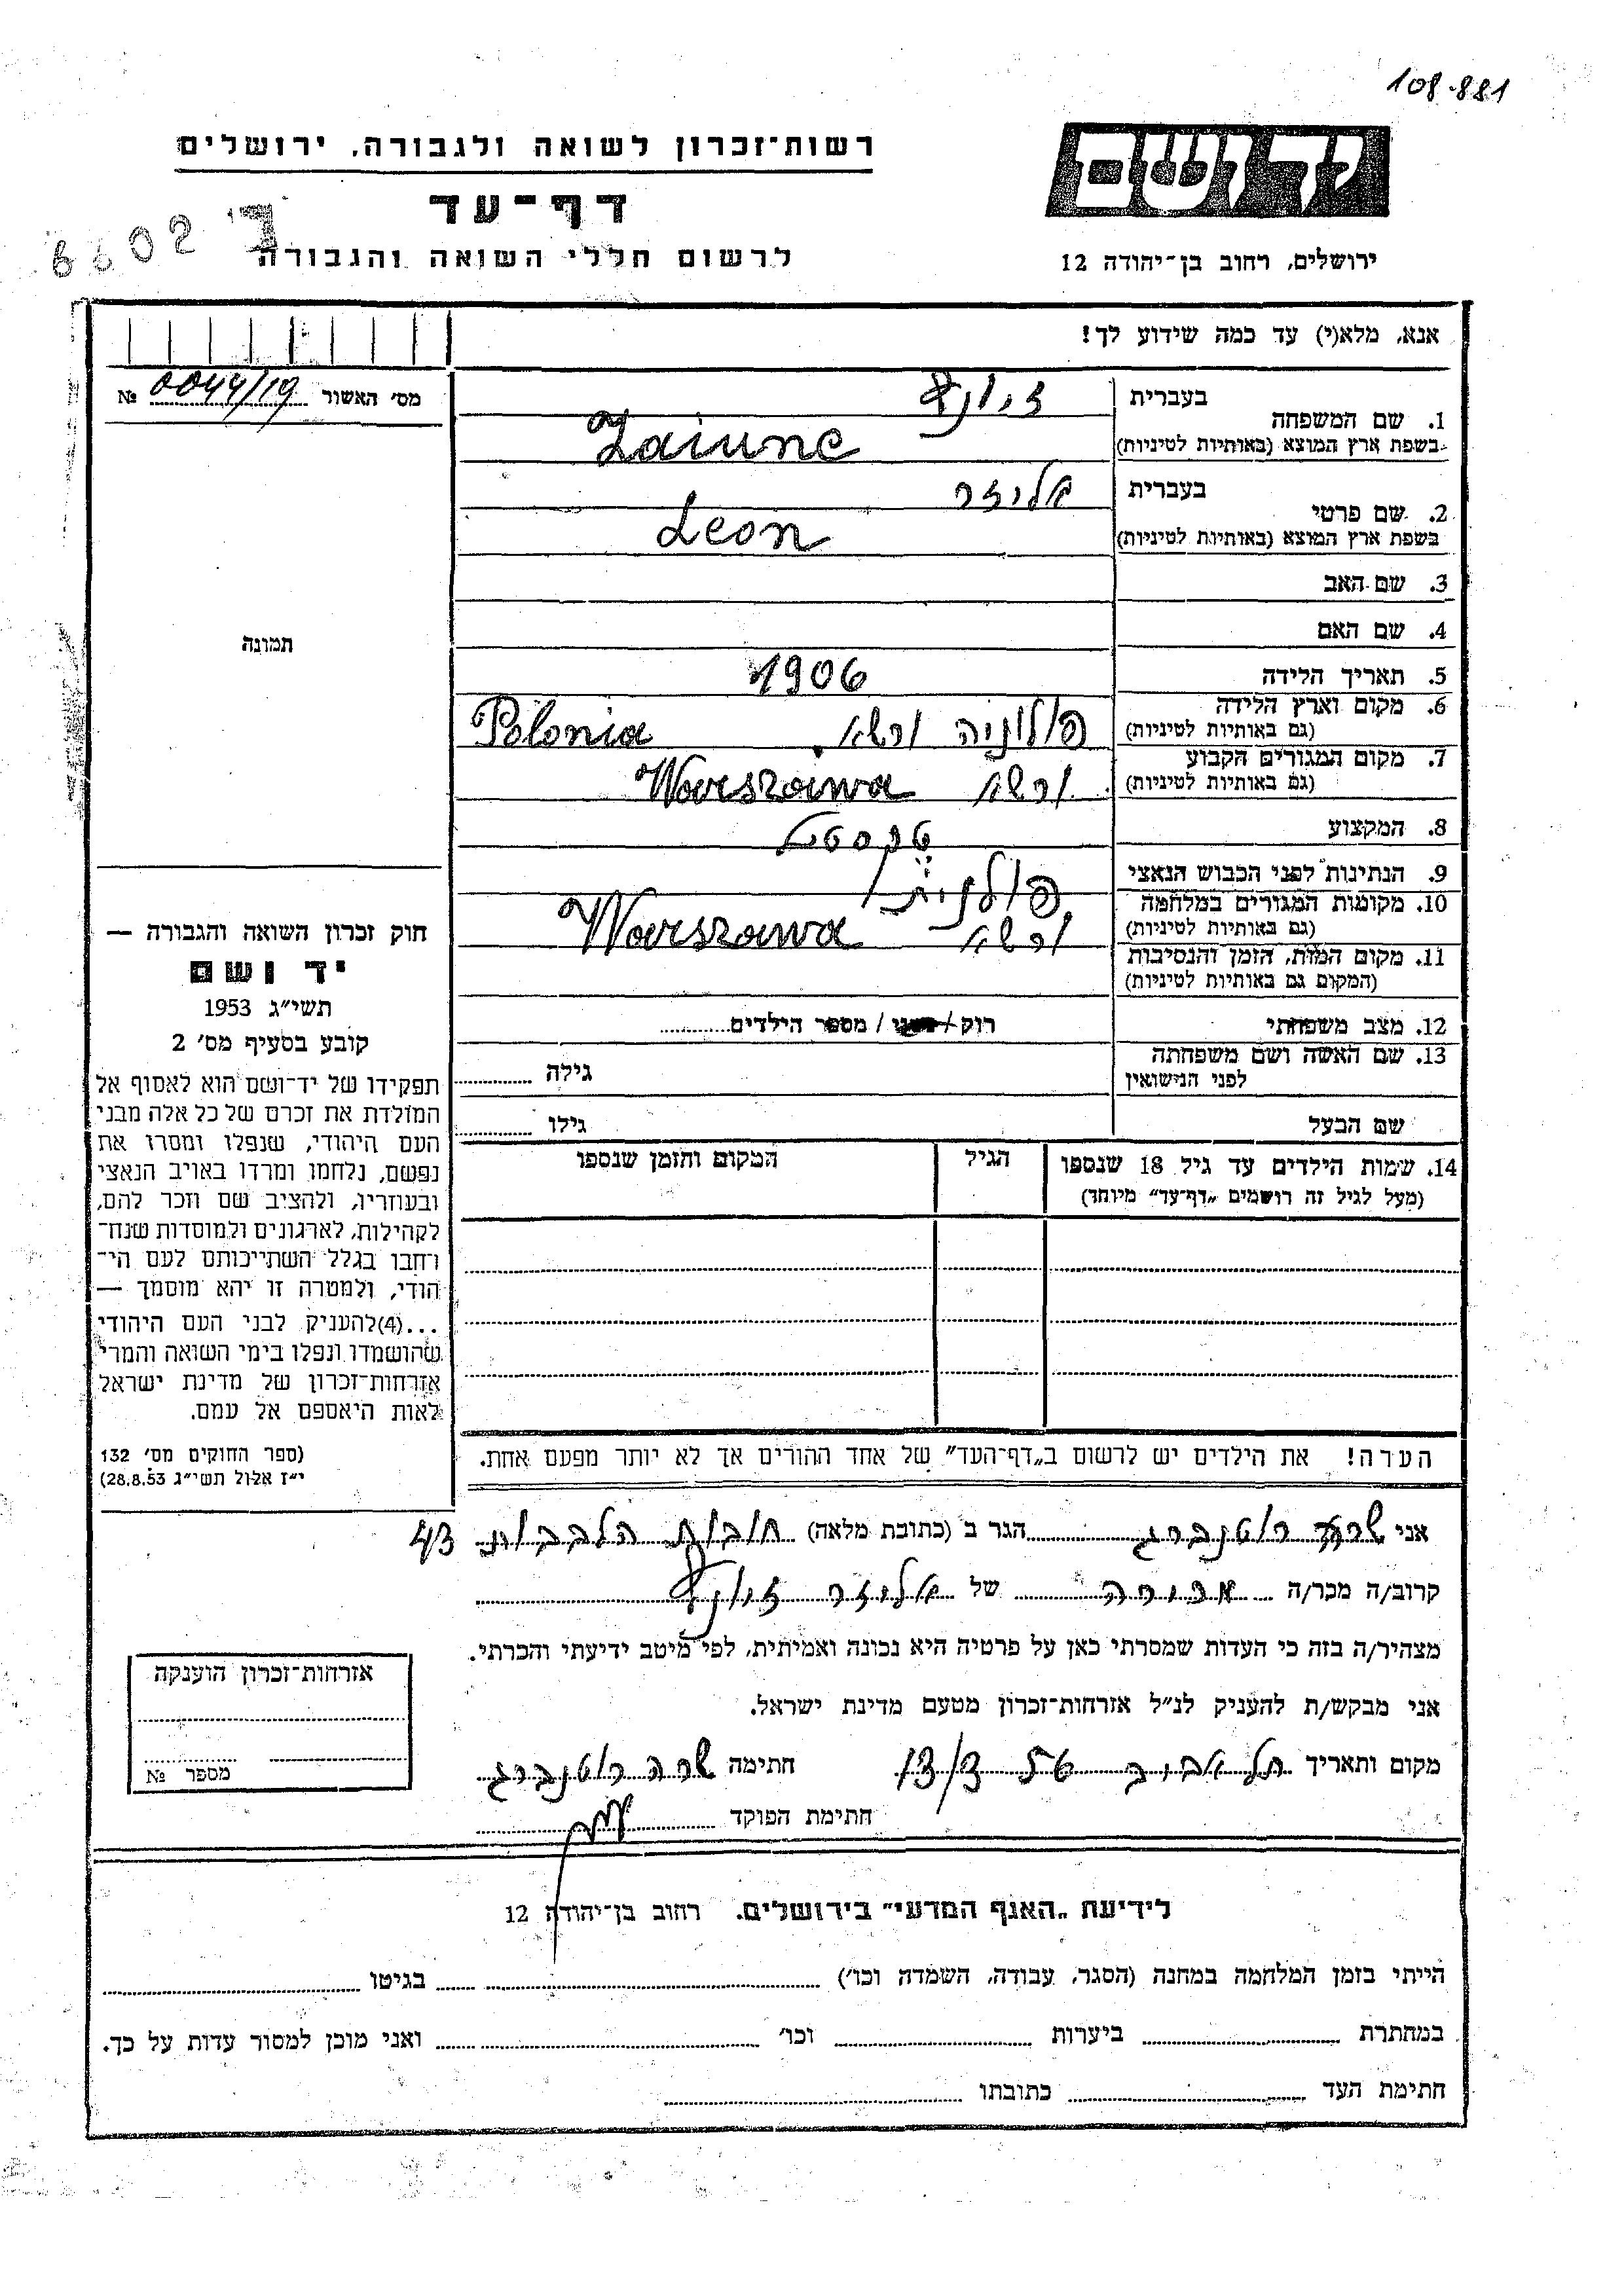 108.881
רשות־זכרון לשואה ולגבורה, ירושלים
יד ושם
דף־עד
לרשום חללי השואה והגבורה
ירושלים, רחוב בן־יהודה 12
אנא, מלא(י) עד כמה שידוע לך!
מס׳ האשור 0044/19 №
1. שם המשפחה
בעברית
בשפת ארץ המוצא (באותיות לטיניות) Zaiunc
2. שם פרטי
בעברית אליזר
בשפת ארץ המוצא (באותיות לטיניות) Leon
3. שם האב
4. שם האם
תמונה
5. תאריך הלידה 1906
6. מקום וארץ הלידה
(גם באותיות לטיניות) פולוניה ורשא. Polonia
7. מקום המגורים הקבוע
(גם באותיות לטיניות) ורשא Warszawa
8. המקצוע
9. הנתינות לפני הכבוש הנאצי פולנית
10. מקומות המגורים במלחמה
(גם באותיות לטיניות) ורשא Warszawa
11. מקום המות, הזמן והנסיבות
(המקום גם באותיות לטיניות)
12. מצב משפחתי רוק / / מספר הילדים
13. שם האשה ושם משפחתה
לפני הנישואין גילה
שם הבעל גילו
14. שמות הילדים עד גיל 18 שנספו
(מעל לגיל זה רושמים „דף־עד״ מיוחד)
הגיל
המקום והזמן שנספו
חוק זכרון השואה והגבורה —
יד ושם
תשי״ג 1953
קובע בסעיף מס׳ 2
תפקידו של יד־ושם הוא לאסוף אל
המולדת את זכרם של כל אלה מבני
העם היהודי, שנפלו ומסרו את
נפשם, נלחמו ומרדו באויב הנאצי
ובעוזריו, ולהציב שם וזכר להם,
לקהילות, לארגונים ולמוסדות שנח־
רחבו בגלל השתייכותם לעם הי־
הודי, ולמטרה זו יהא מוסמך —
...(4)להעניק לבני העם היהודי
שהושמדו ונפלו בימי השואה והמרי
אזרחות־זכרון של מדינת ישראל
לאות היאספם אל עמם.
(ספר החוקים מס׳ 132
י״ז אלול תשי״ג 28.8.53)
הערה! את הילדים יש לרשום ב„דף־העד״ של אחד ההורים אך לא יותר מפעם אחת.
אני שרה רוטנברג הגר ב (כתובת מלאה) חובות הלבבות
קרוב/ה מכר/ה של אליזר
מצהיר/ה בזה כי העדות שמסרתי כאן על פרטיה היא נכונה ואמיתית, לפי מיטב ידיעתי והכרתי.
אני מבקש/ת להעניק לנ״ל אזרחות־זכרון מטעם מדינת ישראל.
מקום ותאריך תל אביב חתימה שרה רוטנברג
חתימת הפוקד
אזרחות־זכרון הוענקה
מספר №
לידיעת „האגף המדעי״ בירושלים. רחוב בן־יהודה 12
הייתי בזמן המלחמה במחנה (הסגר, עבודה, השמדה וכו׳) בגיטו
במחתרת ביערות וכו׳ ואני מוכן למסור עדות על כך.
חתימת העד כתובתו